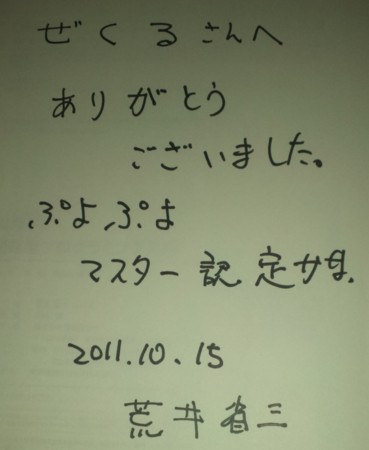 ぜくるさんへ
ありがとう
ございました。
ぷよぷよ
マスター認定かな.
2011.10.15
荒井省三